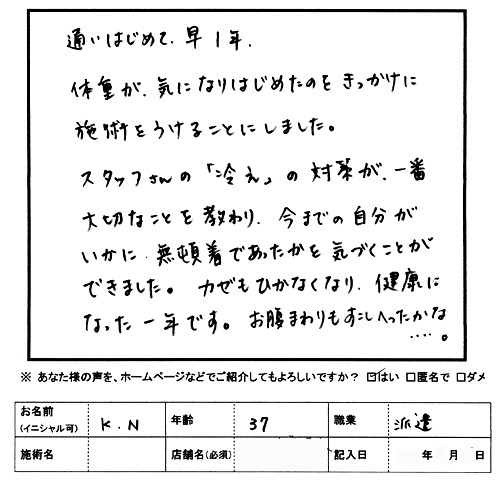 通いはじめて、早1年、
体重が、気になりはじめたのをきっかけに
施術をうけることにしました。
スタッフさんの「冷え」の対策が、一番
大切なことを教わり、今までの自分が
いかに無頓着であったかを気づくことが
できました。カゼもひかなくなり、健康に
なった一年です。お腹まわりもすこしへったかな
……。
※ あなた様の声を、ホームページなどでご紹介してもよろしいですか？ ☑はい □匿名で □ダメ
お名前(イニシャル可) K.N 年齢 37 職業 派遣
施術名 店舗名(必須) 記入日 年 月 日